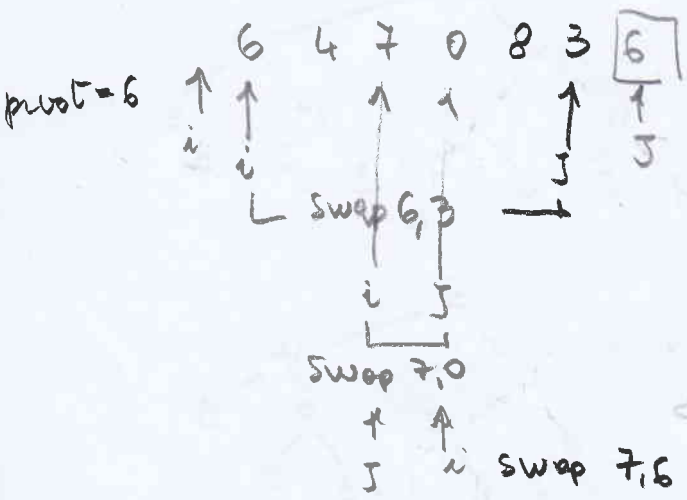 6 4 7 0 8 3 6
pivot = 6
i i J J
swap 6,3
i J
swap 7,0
J i swap 7,6